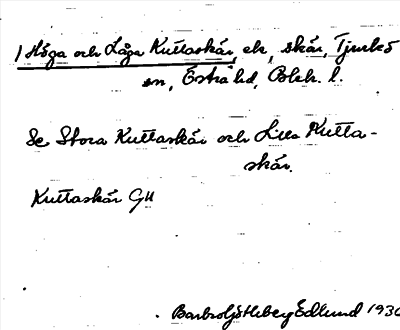 1 Höga och Låga Kuttaskär, ek, skär, Tjurkö
sn, Östra hd, Blek. l.
Se Stora Kuttaskär och Lilla Kutta-
skär.
Kuttaskär GU
Edlund 1930